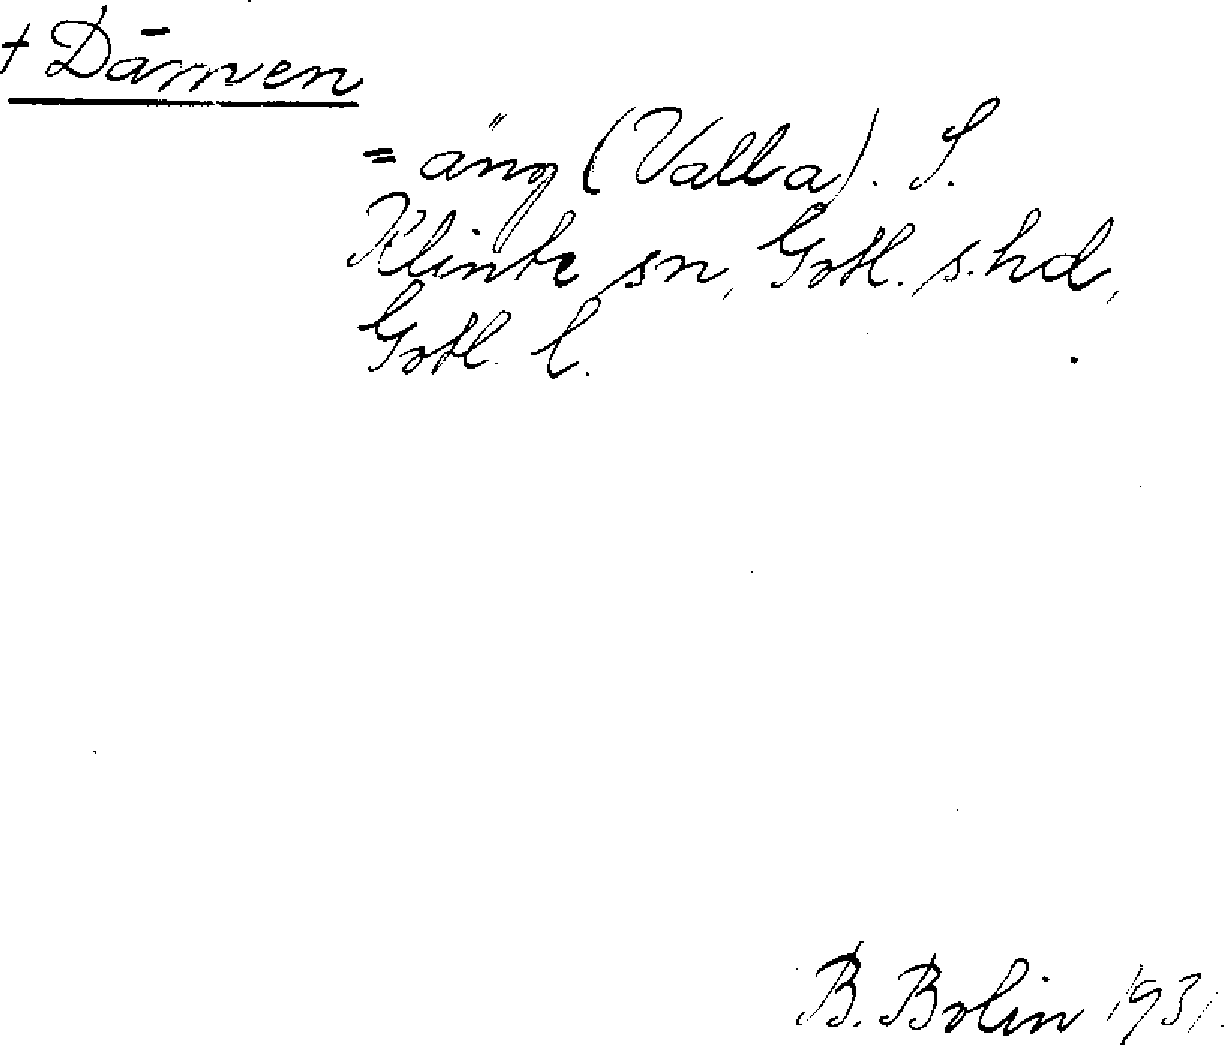 † Dämmen
= äng (Valla). S.
Klinte sn, Gotl. s. hd,
Gotl. l.
B. Bolin 1931.